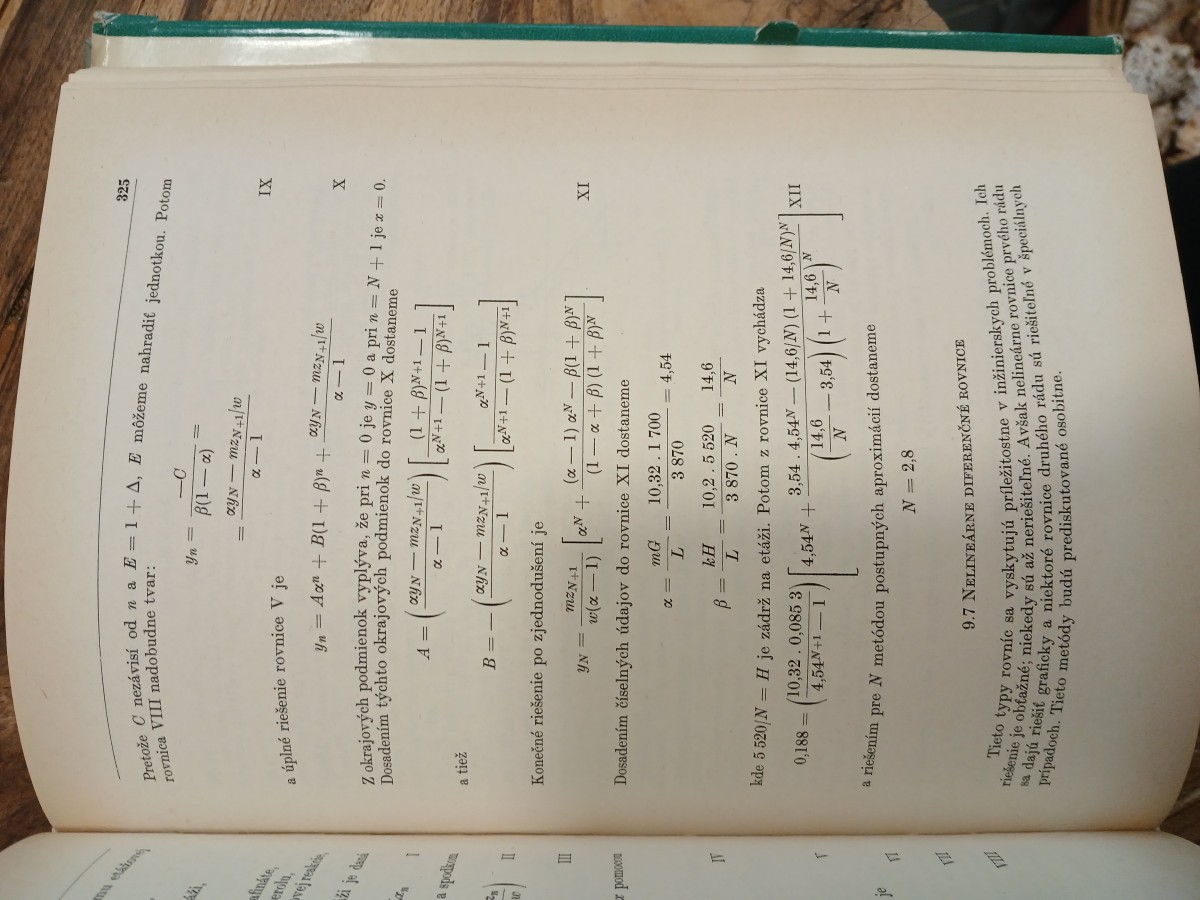 325
Pretože C nezávisí od n a E = 1 + Δ, E môžeme nahradiť jednotkou. Potom
rovnica VIII nadobudne tvar:
y_n = −C / β(1 − α) =
= (αy_N − mz_{N+1}/w) / (α − 1) IX
a úplné riešenie rovnice V je
y_n = Aα^n + B(1 + β)^n + (αy_N − mz_{N+1}/w) / (α − 1) X
Z okrajových podmienok vyplýva, že pri n = 0 je y = 0 a pri n = N + 1 je x = 0.
Dosadením týchto okrajových podmienok do rovnice X dostaneme
A = ((αy_N − mz_{N+1}/w) / (α − 1)) [((1 + β)^{N+1} − 1) / (α^{N+1} − (1 + β)^{N+1})]
a tiež
B = − ((αy_N − mz_{N+1}/w) / (α − 1)) [(α^{N+1} − 1) / (α^{N+1} − (1 + β)^{N+1})]
Konečné riešenie po zjednodušení je
y_N = mz_{N+1} / w(α − 1) [α^N + ((α − 1) α^N − β(1 + β)^N) / ((1 − α + β) (1 + β)^N)] XI
Dosadením číselných údajov do rovnice XI dostaneme
α = mG / L = 10,32 . 1 700 / 3 870 = 4,54
β = kH / L = 10,2 . 5 520 / 3 870 . N = 14,6 / N
kde 5 520/N = H je zádrž na etáži. Potom z rovnice XI vychádza
0,188 = (10,32 . 0,085 3 / (4,54^{N+1} − 1)) [4,54^N + (3,54 . 4,54^N − (14,6/N) (1 + 14,6/N)^N) / ((14,6/N − 3,54) (1 + 14,6/N)^N)] XII
a riešením pre N metódou postupných aproximácií dostaneme
N = 2,8
9.7 NELINEÁRNE DIFERENČNÉ ROVNICE
Tieto typy rovníc sa vyskytujú príležitostne v inžinierskych problémoch. Ich
riešenie je obťažné; niekedy sú až neriešiteľné. Avšak nelineárne rovnice prvého rádu
sa dajú riešiť graficky a niektoré rovnice druhého rádu sú riešiteľné v špeciálnych
prípadoch. Tieto metódy budú prediskutované osobitne.
mu etážovej
áži,
afináte,
erolu,
ovej reakcie,
ži je daná
I
a spodkom
II
III
pomocou
IV
V
je
VI
VII
VIII